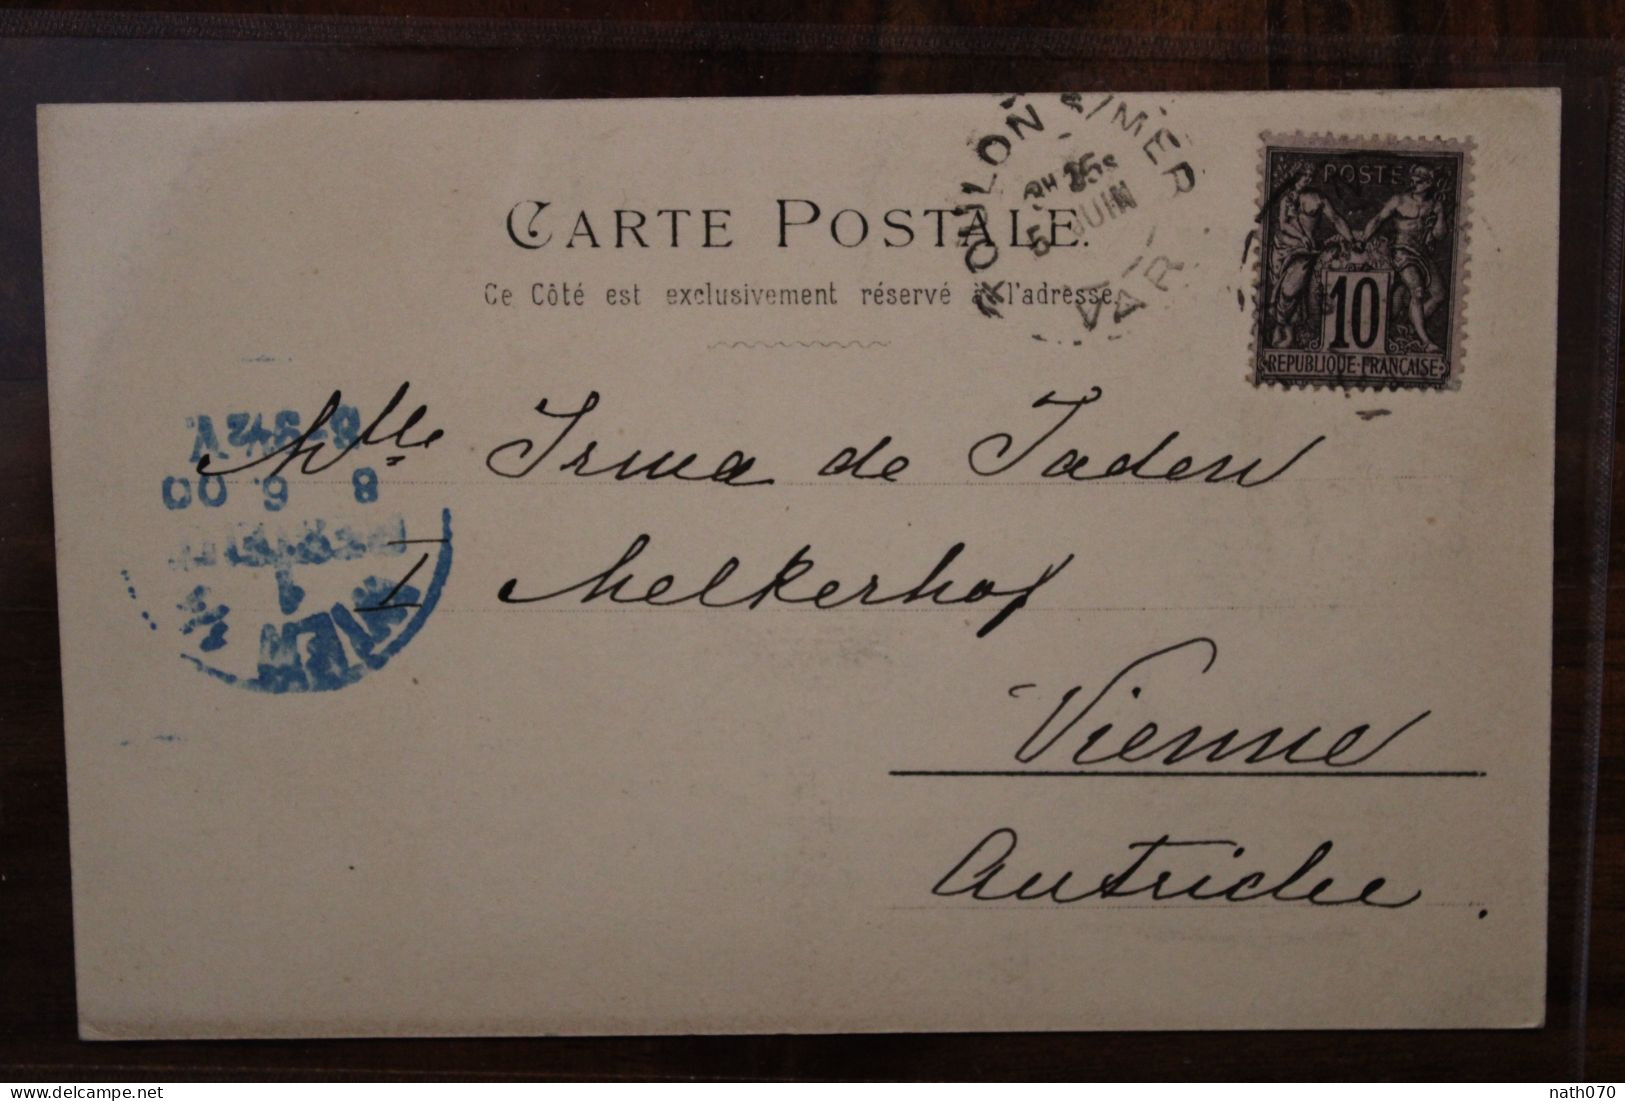 CARTE POSTALE.
Ce Côté est exclusivement réservé à l'adresse.
TOULON S/MER
5 JUIN
VAR
POSTE
10
REPUBLIQUE·FRANÇAISE
Mlle Irma de Jaden
I Melkerhof
Vienne
Autriche.
WIEN
1
8 6. 00
8-9½V.
nath070